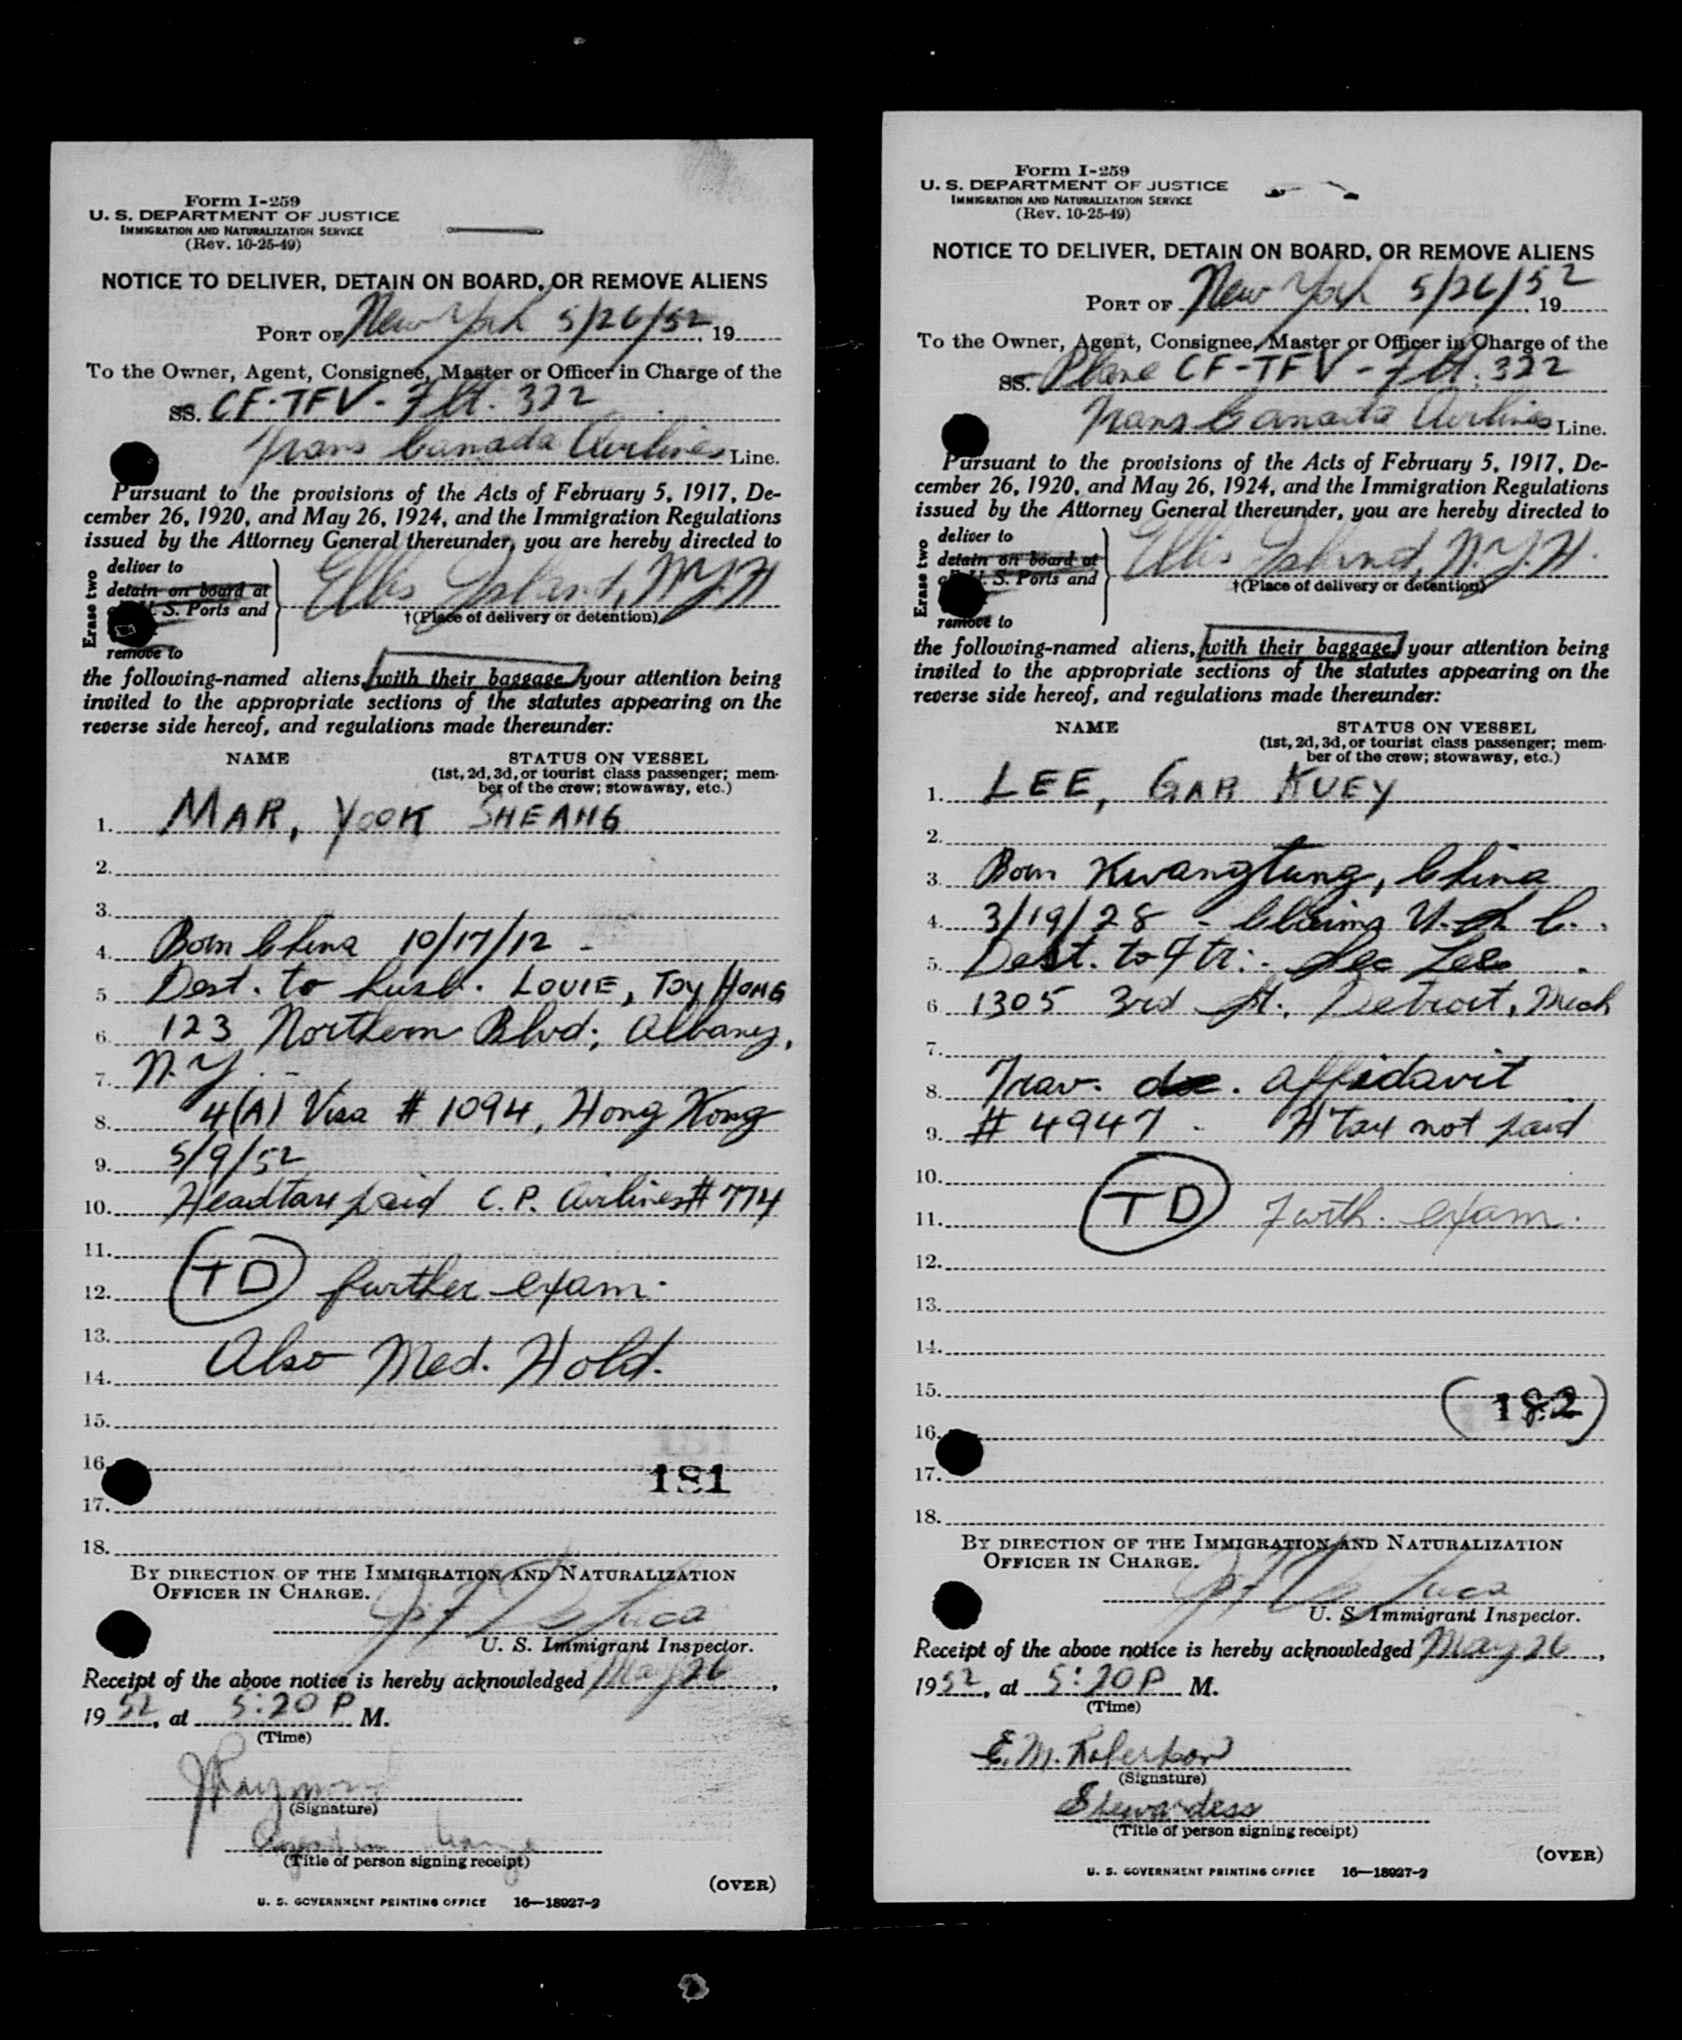 Form I-259
U. S. DEPARTMENT OF JUSTICE
IMMIGRATION AND NATURALIZATION SERVICE
(Rev. 10-25-49)
NOTICE TO DELIVER, DETAIN ON BOARD, OR REMOVE ALIENS
PORT OF New York 5/26/52, 19
To the Owner, Agent, Consignee, Master or Officer in Charge of the
SS. CF-TFV - Flt. 322
Trans Canada Airlines Line.
Pursuant to the provisions of the Acts of February 5, 1917, De-
cember 26, 1920, and May 26, 1924, and the Immigration Regulations
issued by the Attorney General thereunder, you are hereby directed to
Erase two
deliver to
detain on board at
S. Ports and
remove to
Ellis Island, N.Y.H
†(Place of delivery or detention)
the following-named aliens, with their baggage, your attention being
invited to the appropriate sections of the statutes appearing on the
reverse side hereof, and regulations made thereunder:
NAME STATUS ON VESSEL
(1st, 2d, 3d, or tourist class passenger; mem-
ber of the crew; stowaway, etc.)
1. MAR, YOOK SHEANG
2.
3.
4. Born China 10/17/12 -
5 Dest. to husb. LOUIE, TOY HONG
6. 123 Northern Blvd; Albany,
7. N.Y. -
8. 4(A) Visa # 1094, Hong Kong
9. 5/9/52
10. Headtax paid C.P. Airlines # 774
11.
12. TD further exam.
13.
14. Also Med. Hold.
15.
16.
181
17.
18.
BY DIRECTION OF THE IMMIGRATION AND NATURALIZATION
OFFICER IN CHARGE.
J F De Luca
U. S. Immigrant Inspector.
Receipt of the above notice is hereby acknowledged May 26,
1952, at 5:20 P M.
(Time)
(Signature)
(Title of person signing receipt)
(OVER)
U. S. GOVERNMENT PRINTING OFFICE 16—18927-2
Form I-259
U. S. DEPARTMENT OF JUSTICE
IMMIGRATION AND NATURALIZATION SERVICE
(Rev. 10-25-49)
NOTICE TO DELIVER, DETAIN ON BOARD, OR REMOVE ALIENS
PORT OF New York 5/26/52, 19
To the Owner, Agent, Consignee, Master or Officer in Charge of the
SS. Plane CF-TFV - Flt. 322
Trans Canada Airlines Line.
Pursuant to the provisions of the Acts of February 5, 1917, De-
cember 26, 1920, and May 26, 1924, and the Immigration Regulations
issued by the Attorney General thereunder, you are hereby directed to
Erase two
deliver to
detain on board at
S. Ports and
remove to
Ellis Island, N.Y.H.
†(Place of delivery or detention)
the following-named aliens, with their baggage, your attention being
invited to the appropriate sections of the statutes appearing on the
reverse side hereof, and regulations made thereunder:
NAME STATUS ON VESSEL
(1st, 2d, 3d, or tourist class passenger; mem-
ber of the crew; stowaway, etc.)
1. LEE, GAR KUEY
2.
3. Born Kwangtung, China
4. 3/19/28 - Claims U.S. C.
5. Dest. to Ftr: - Lee
6 1305 3rd St. Detroit, Mich
7.
8. Trav. doc. affidavit
9. # 4947 - H tax not paid
10.
11. TD Furth. exam.
12.
13.
14.
15.
(182)
16.
17.
18.
BY DIRECTION OF THE IMMIGRATION AND NATURALIZATION
OFFICER IN CHARGE.
J F De Luca
U. S. Immigrant Inspector.
Receipt of the above notice is hereby acknowledged May 26,
1952, at 5:20 P M.
(Time)
E. M. Robertson
(Signature)
Stewardess
(Title of person signing receipt)
(OVER)
U. S. GOVERNMENT PRINTING OFFICE 16—18927-2